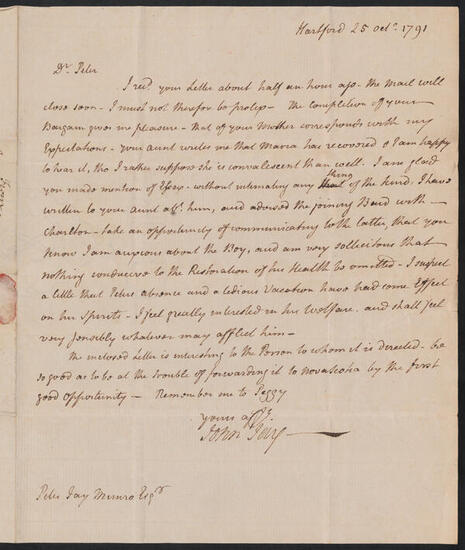 Hartford 25 Octr. 1791
Dr. Peter
I recd. your Letter about half an hour ago - the Mail will
close soon - I must not therefore be prolix - The completion of your
Bargain gives me pleasure - that of your Mother corresponds with my
Expectations - your aunt writes me that Maria has recovered & I am happy
to hear it, tho I rather suppose she is convalescent than well. I am glad
you made mention of - without intimating any thing of the kind. I have
written to your Aunt abt. him, and advised the joining Bard with
Charlton - take an opportunity of communicating to the latter, that you
know I am anxious about the Boy, and am very sollicitous that
nothing conducive to the Restoration of his Health be omitted - I suspect
a little that Peters absence and a tedious Vacation have had some Effect
on his Spirits - I feel greatly interested in his Welfare. and shall feel
very sensibly whatever may afflict him -
The enclosed Letter is interesting to the Person to whom it is directed - be
so good as to be at the trouble of forwarding it to Novascotia by the first
good opportunity - Remember me to Peggy
yours affy.
John Jay -
Peter Jay Munro Esqr